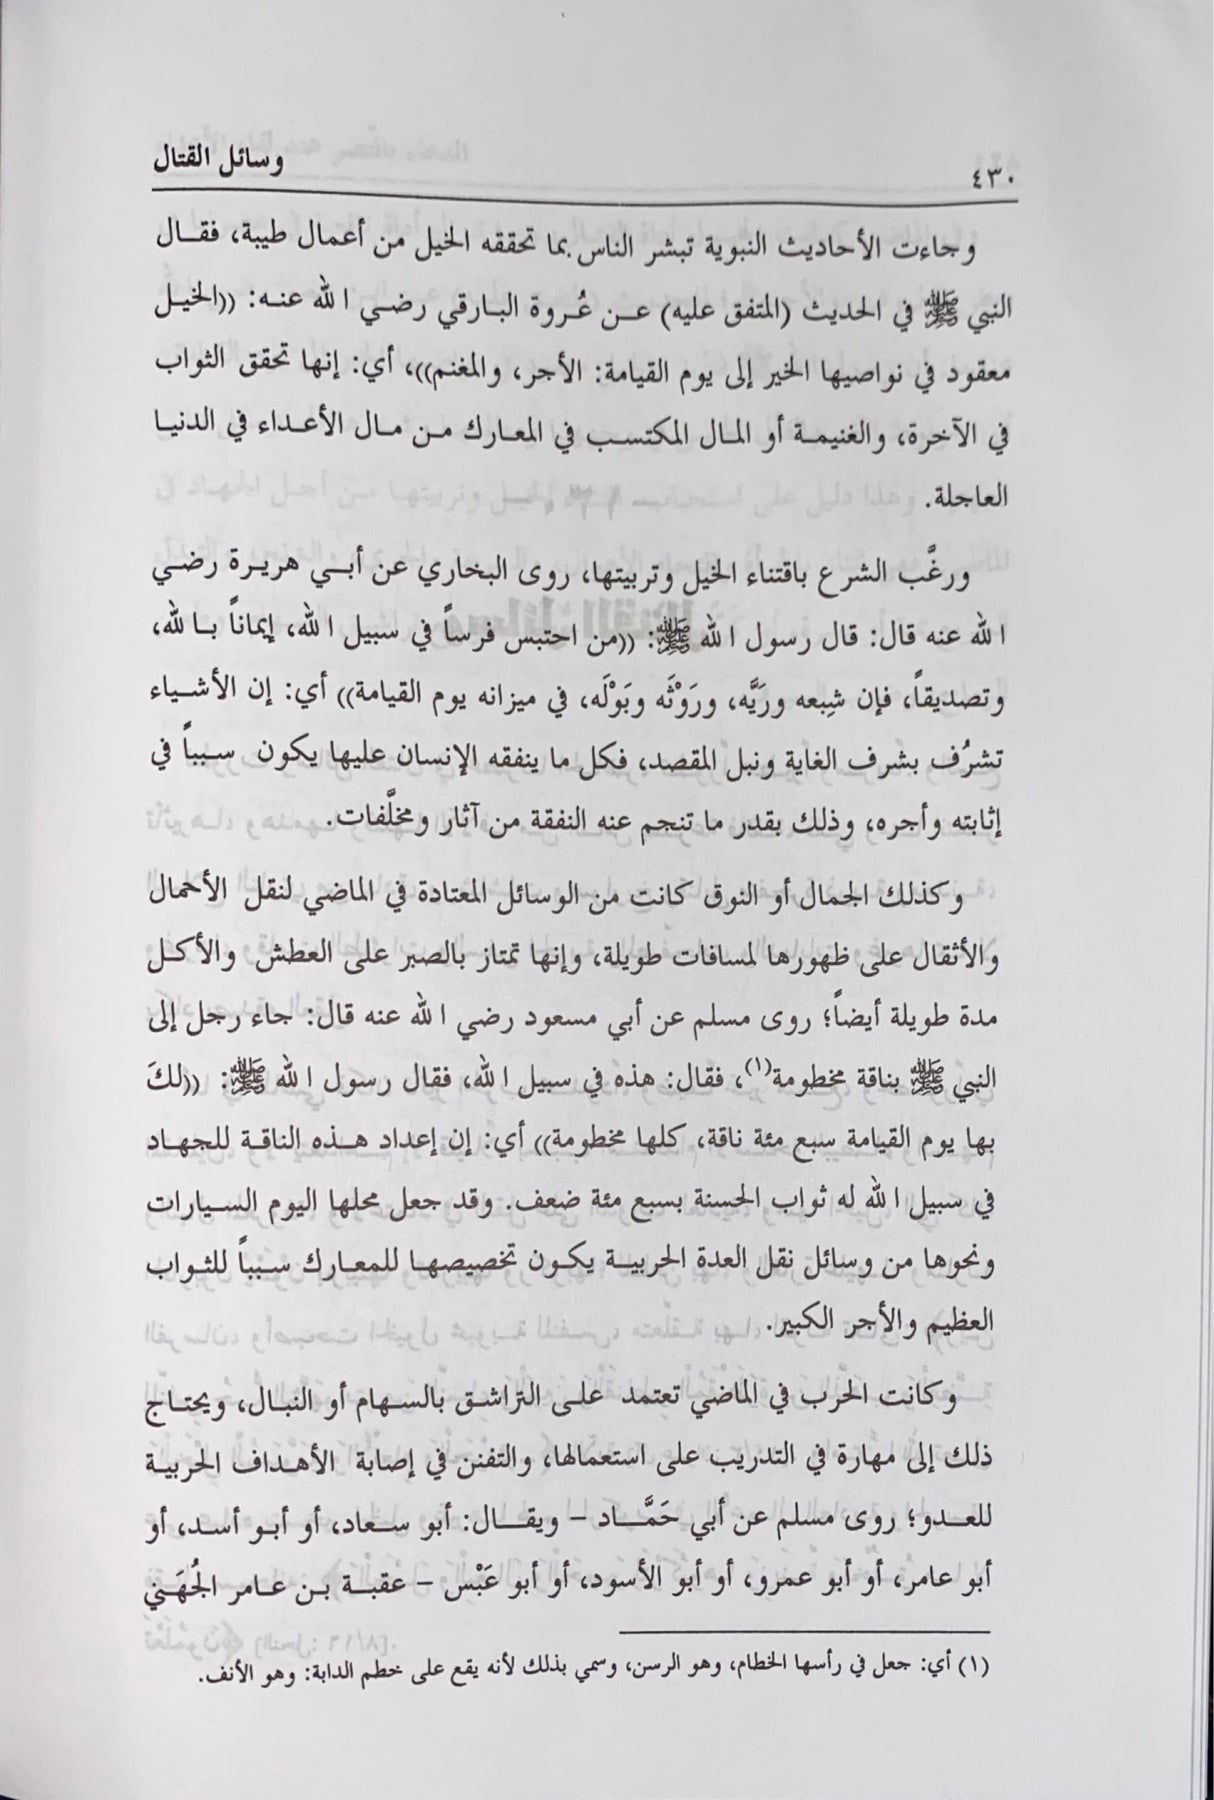 ٤٣٠ وسائل القتال
وجاءت الأحاديث النبوية تبشر الناس بما تحققه الخيل من أعمال طيبة، فقال
النبي ﷺ في الحديث (المتفق عليه) عن عُروة البارقي رضي الله عنه: ((الخيل
معقود في نواصيها الخير إلى يوم القيامة: الأجر، والمغنم))، أي: إنها تحقق الثواب
في الآخرة، والغنيمة أو المال المكتسب في المعارك من مال الأعداء في الدنيا
العاجلة.
ورغَّب الشرع باقتناء الخيل وتربيتها، روى البخاري عن أبي هريرة رضي
الله عنه قال: قال رسول الله ﷺ: ((من احتبس فرساً في سبيل الله، إيماناً بالله،
وتصديقاً، فإن شِبعه ورَيَّه، ورَوْثَه وبَوْلَه، في ميزانه يوم القيامة)) أي: إن الأشياء
تشرُف بشرف الغاية ونبل المقصد، فكل ما ينفقه الإنسان عليها يكون سبباً في
إثابته وأجره، وذلك بقدر ما تنجم عنه النفقة من آثار ومخلَّفات.
وكذلك الجمال أو النوق كانت من الوسائل المعتادة في الماضي لنقل الأحمال
والأثقال على ظهورها لمسافات طويلة، وإنها تمتاز بالصبر على العطش والأكل
مدة طويلة أيضاً؛ روى مسلم عن أبي مسعود رضي الله عنه قال: جاء رجل إلى
النبي ﷺ بناقة مخطومة(١)، فقال: هذه في سبيل الله، فقال رسول الله ﷺ: ((لكَ
بها يوم القيامة سبع مئة ناقة، كلها مخطومة)) أي: إن إعداد هذه الناقة للجهاد
في سبيل الله له ثواب الحسنة بسبع مئة ضعف. وقد جعل محلها اليوم السيارات
ونحوها من وسائل نقل العدة الحربية يكون تخصيصها للمعارك سبباً للثواب
العظيم والأجر الكبير.
وكانت الحَرب في الماضي تعتمد على التراشق بالسهام أو النبال، ويحتاج
ذلك إلى مهارة في التدريب على استعمالها، والتفنن في إصابة الأهداف الحربية
للعدو؛ روى مسلم عن أبي حَمَّاد – ويقال: أبو سعاد، أو أبو أسد، أو
أبو عامر، أو أبو عمرو، أو أبو الأسود، أو أبو عَبْس – عقبة بن عامر الجُهَني
(١) أي: جعل في رأسها الخطام، وهو الرسن، وسمي بذلك لأنه يقع على خطم الدابة: وهو الأنف.